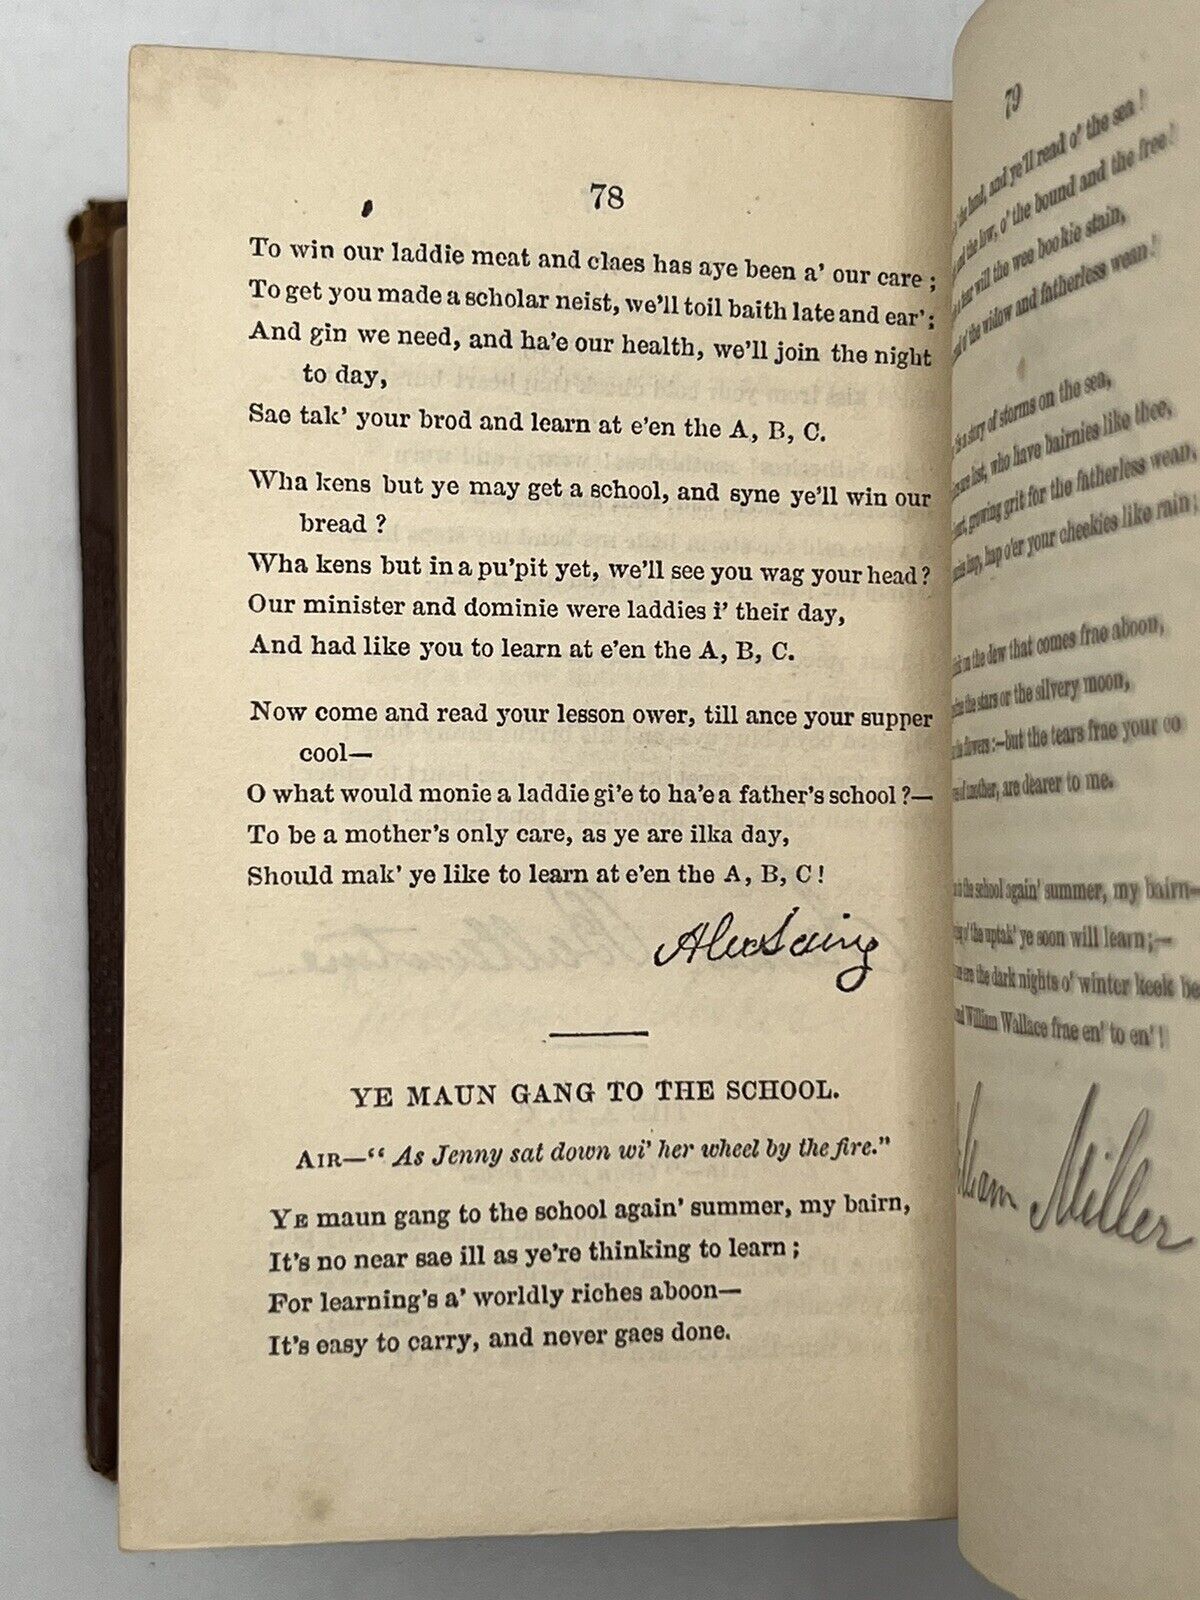 78
To win our laddie meat and claes has aye been a' our care;
To get you made a scholar neist, we'll toil baith late and ear';
And gin we need, and ha'e our health, we'll join the night
to day,
Sae tak' your brod and learn at e'en the A, B, C.
Wha kens but ye may get a school, and syne ye'll win our
bread?
Wha kens but in a pu'pit yet, we'll see you wag your head?
Our minister and dominie were laddies i' their day,
And had like you to learn at e'en the A, B, C.
Now come and read your lesson ower, till ance your supper
cool—
O what would monie a laddie gi'e to ha'e a father's school?—
To be a mother's only care, as ye are ilka day,
Should mak' ye like to learn at e'en the A, B, C!
Alex Laing
YE MAUN GANG TO THE SCHOOL.
AIR—"As Jenny sat down wi' her wheel by the fire."
YE maun gang to the school again' summer, my bairn,
It's no near sae ill as ye're thinking to learn;
For learning's a' worldly riches aboon—
It's easy to carry, and never gaes done.
79
the land, and ye'll read o' the sea!
and the low, o' the bound and the free!
a tear will the wee bookie stain,
of the widow and fatherless wean!
a story of storms on the sea,
are lost, who have bairnies like thee,
growing grit for the fatherless wean,
hap o'er your cheekies like rain;
on the dew that comes frae aboon,
the stars or the silvery moon,
the flowers:—but the tears frae your
mother, are dearer to me.
the school again' summer, my bairn—
of the uptak' ye soon will learn;—
are the dark nights o' winter keek
William Wallace frae en' to en'!
Miller